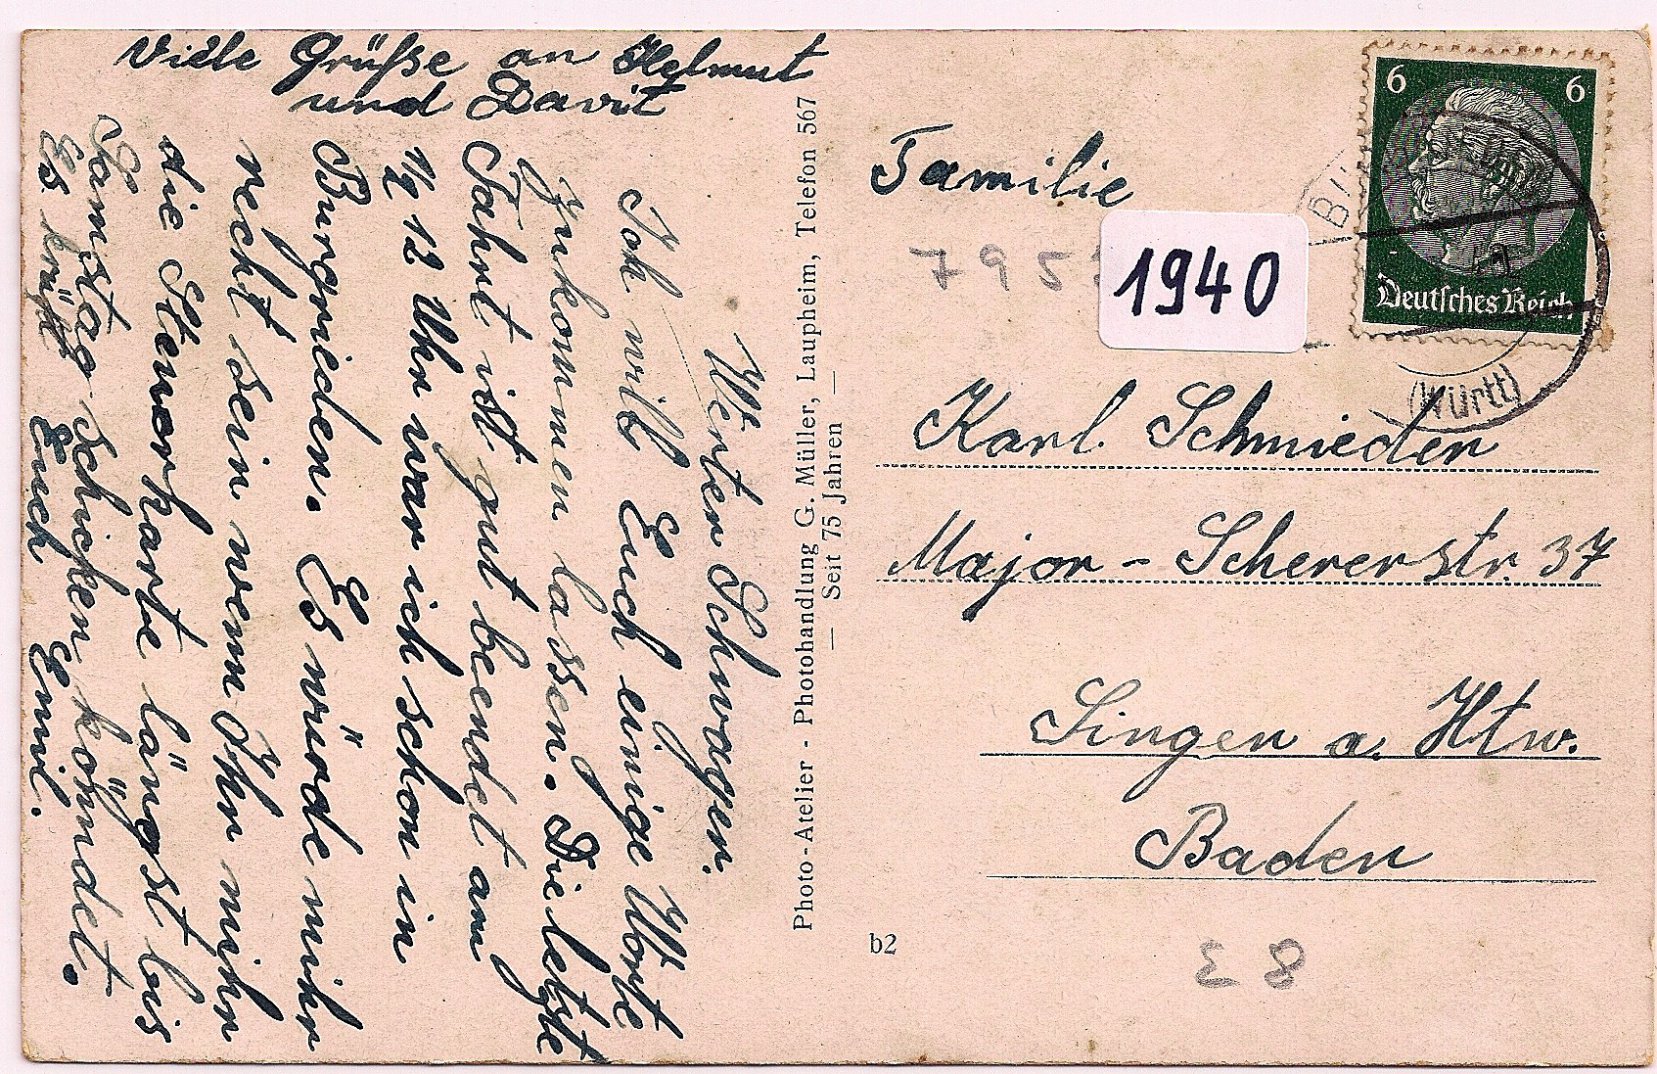 Viele Grüsse an Helmut
und Davit
Werter Schwager.
Ich will Euch einige Worte
zukommen lassen. Die letzte
Fahrt ist gut beendet am
½ 12 Uhr war ich schon in
Burgrieden. Es würde mihr
recht sein wenn Ihr mihr
die Steuerkarte längst bis
Samstag schicken könndet.
Es grüßt Euch Emil.
Photo-Atelier - Photohandlung G. Müller, Laupheim, Telefon 567
— Seit 75 Jahren —
6 6
Deutsches Reich
(Württ)
Familie
795
1940
Karl Schmieder
Major-Schererstr. 37
Singen a. Htw.
Baden
b2
E 8